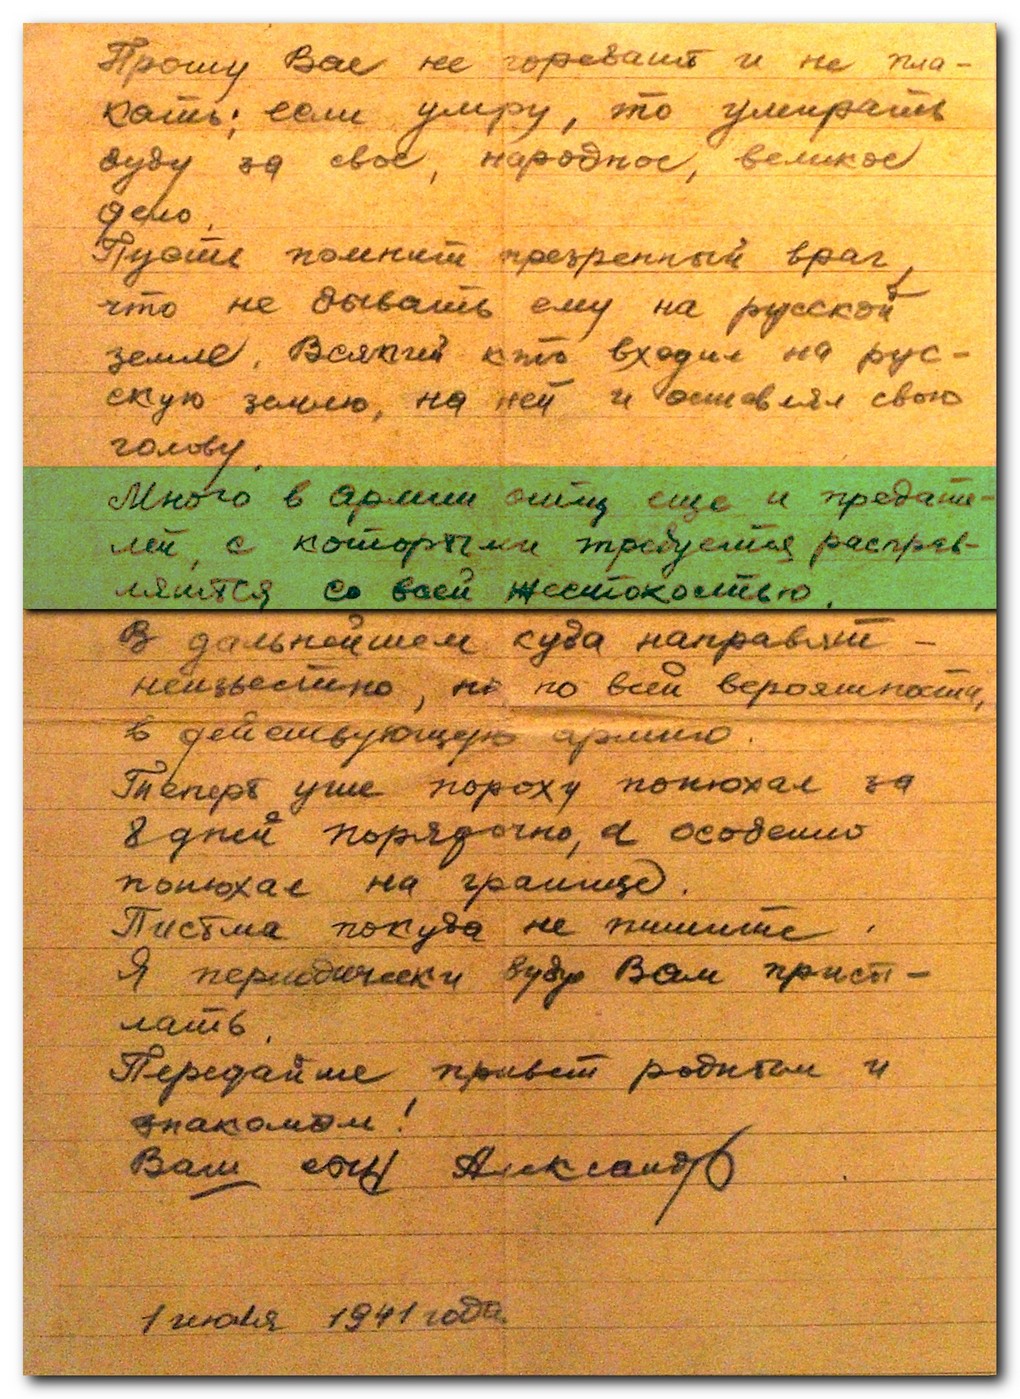 Прошу Вас не горевать и не пла-
кать; если умру, то умирать
буду за свое, народное, великое
дело.
Пусть помнит презренный враг,
что не бывать ему на русской
земле. Всякий кто входил на рус-
скую землю, на ней и оставлял свою
голову.
Много в армии еще и предате-
лей, с которыми требуется расправ-
ляться со всей жестокостью.
В дальнейшем куда направят -
неизвестно, но по всей вероятности,
в действующую армию.
Теперь уже пороху понюхал за
8 дней порядочно, а особенно
понюхал на границе.
Письма покуда не пишите.
Я периодически буду Вам присы-
лать.
Передайте привет родным и
знакомым!
Ваш Александр
1 июля 1941 года.